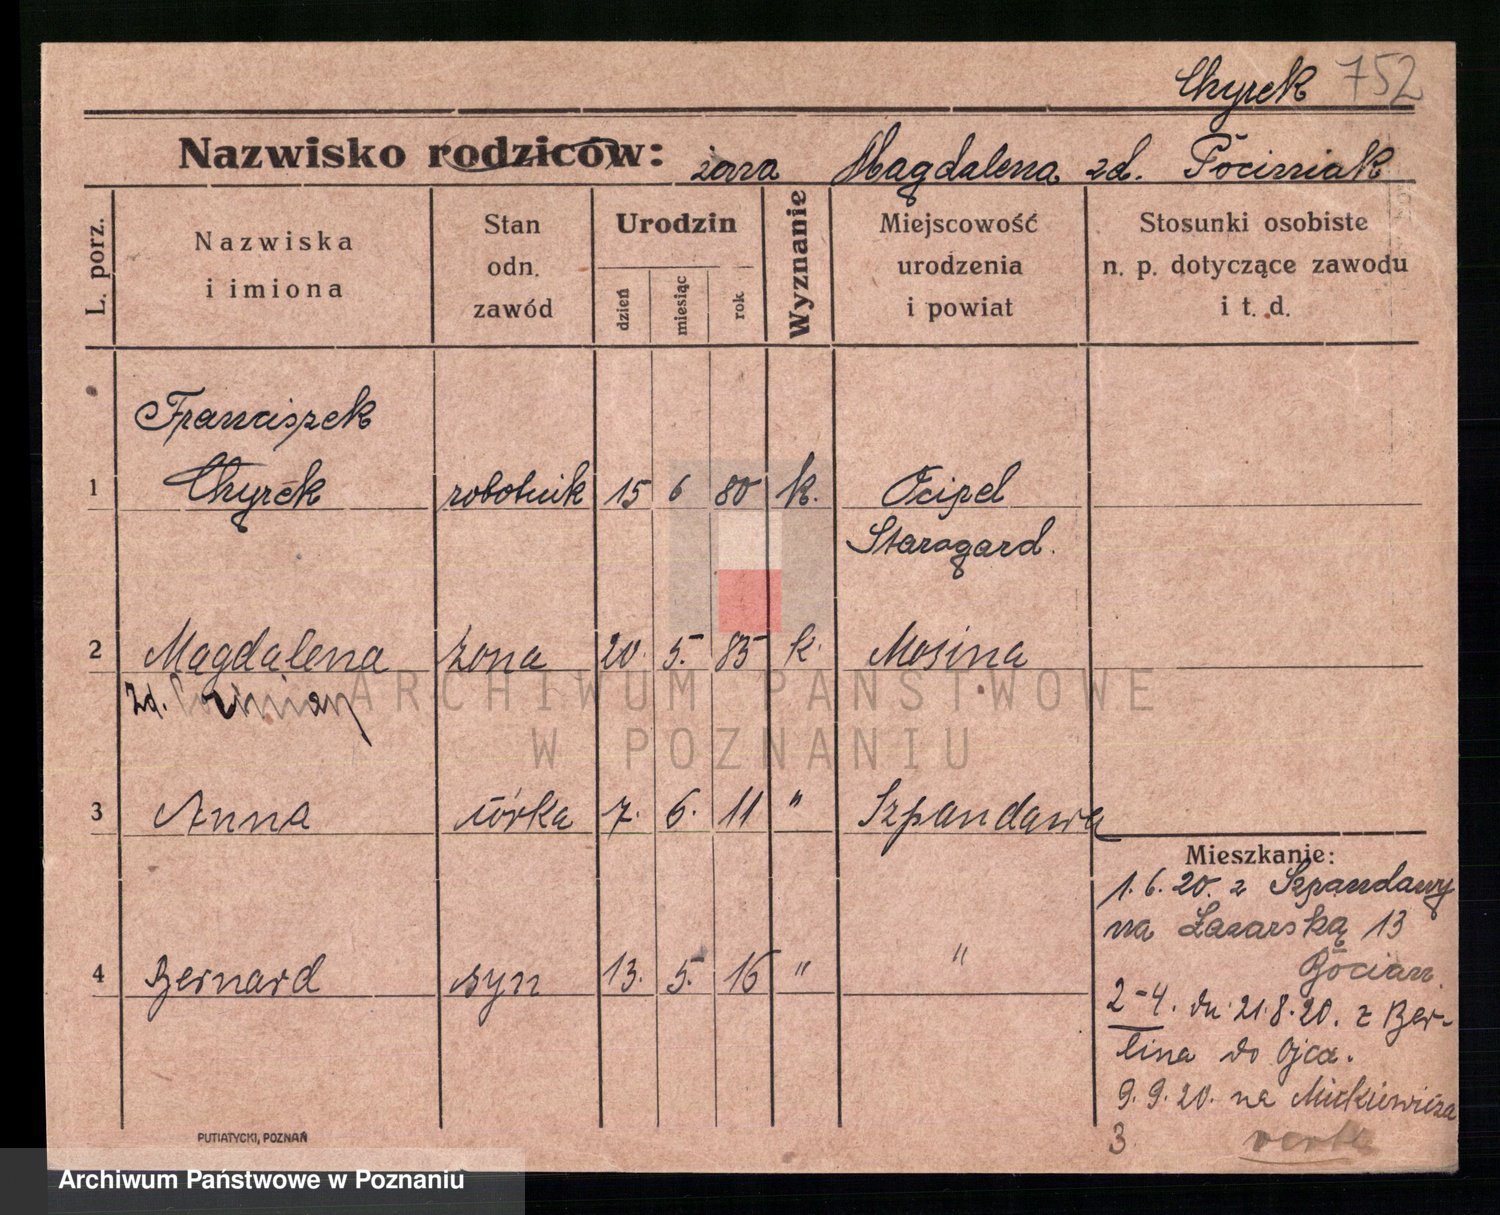 Chyrek 752
Nazwisko rodziców: żona Magdalena zd. Pociniak
L. porz.
Nazwiska i imiona
Stan odn. zawód
Urodzin
dzień
miesiąc
rok
Wyznanie
Miejscowość urodzenia i powiat
Stosunki osobiste n. p. dotyczące zawodu i t. d.
Franciszek
1 Chyrek robotnik 15 6 80 k. Ocipel
Starogard.
2 Magdalena żona 20. 5. 85 k. Mosina
zd.
3 Anna córka 7. 6. 11 " Szpandawa
4 Bernard syn 13. 5. 16 " "
Mieszkanie:
1. 6. 20. z Szpandawy
na Łazarską 13
Bocian.
2-4. dn. 21. 8. 20. z Ber-
lina do Ojca.
9. 9. 20. na Mickiewicza
3. verte
PUTIATYCKI, POZNAŃ
ARCHIWUM PAŃSTWOWE
W POZNANIU
Archiwum Państwowe w Poznaniu